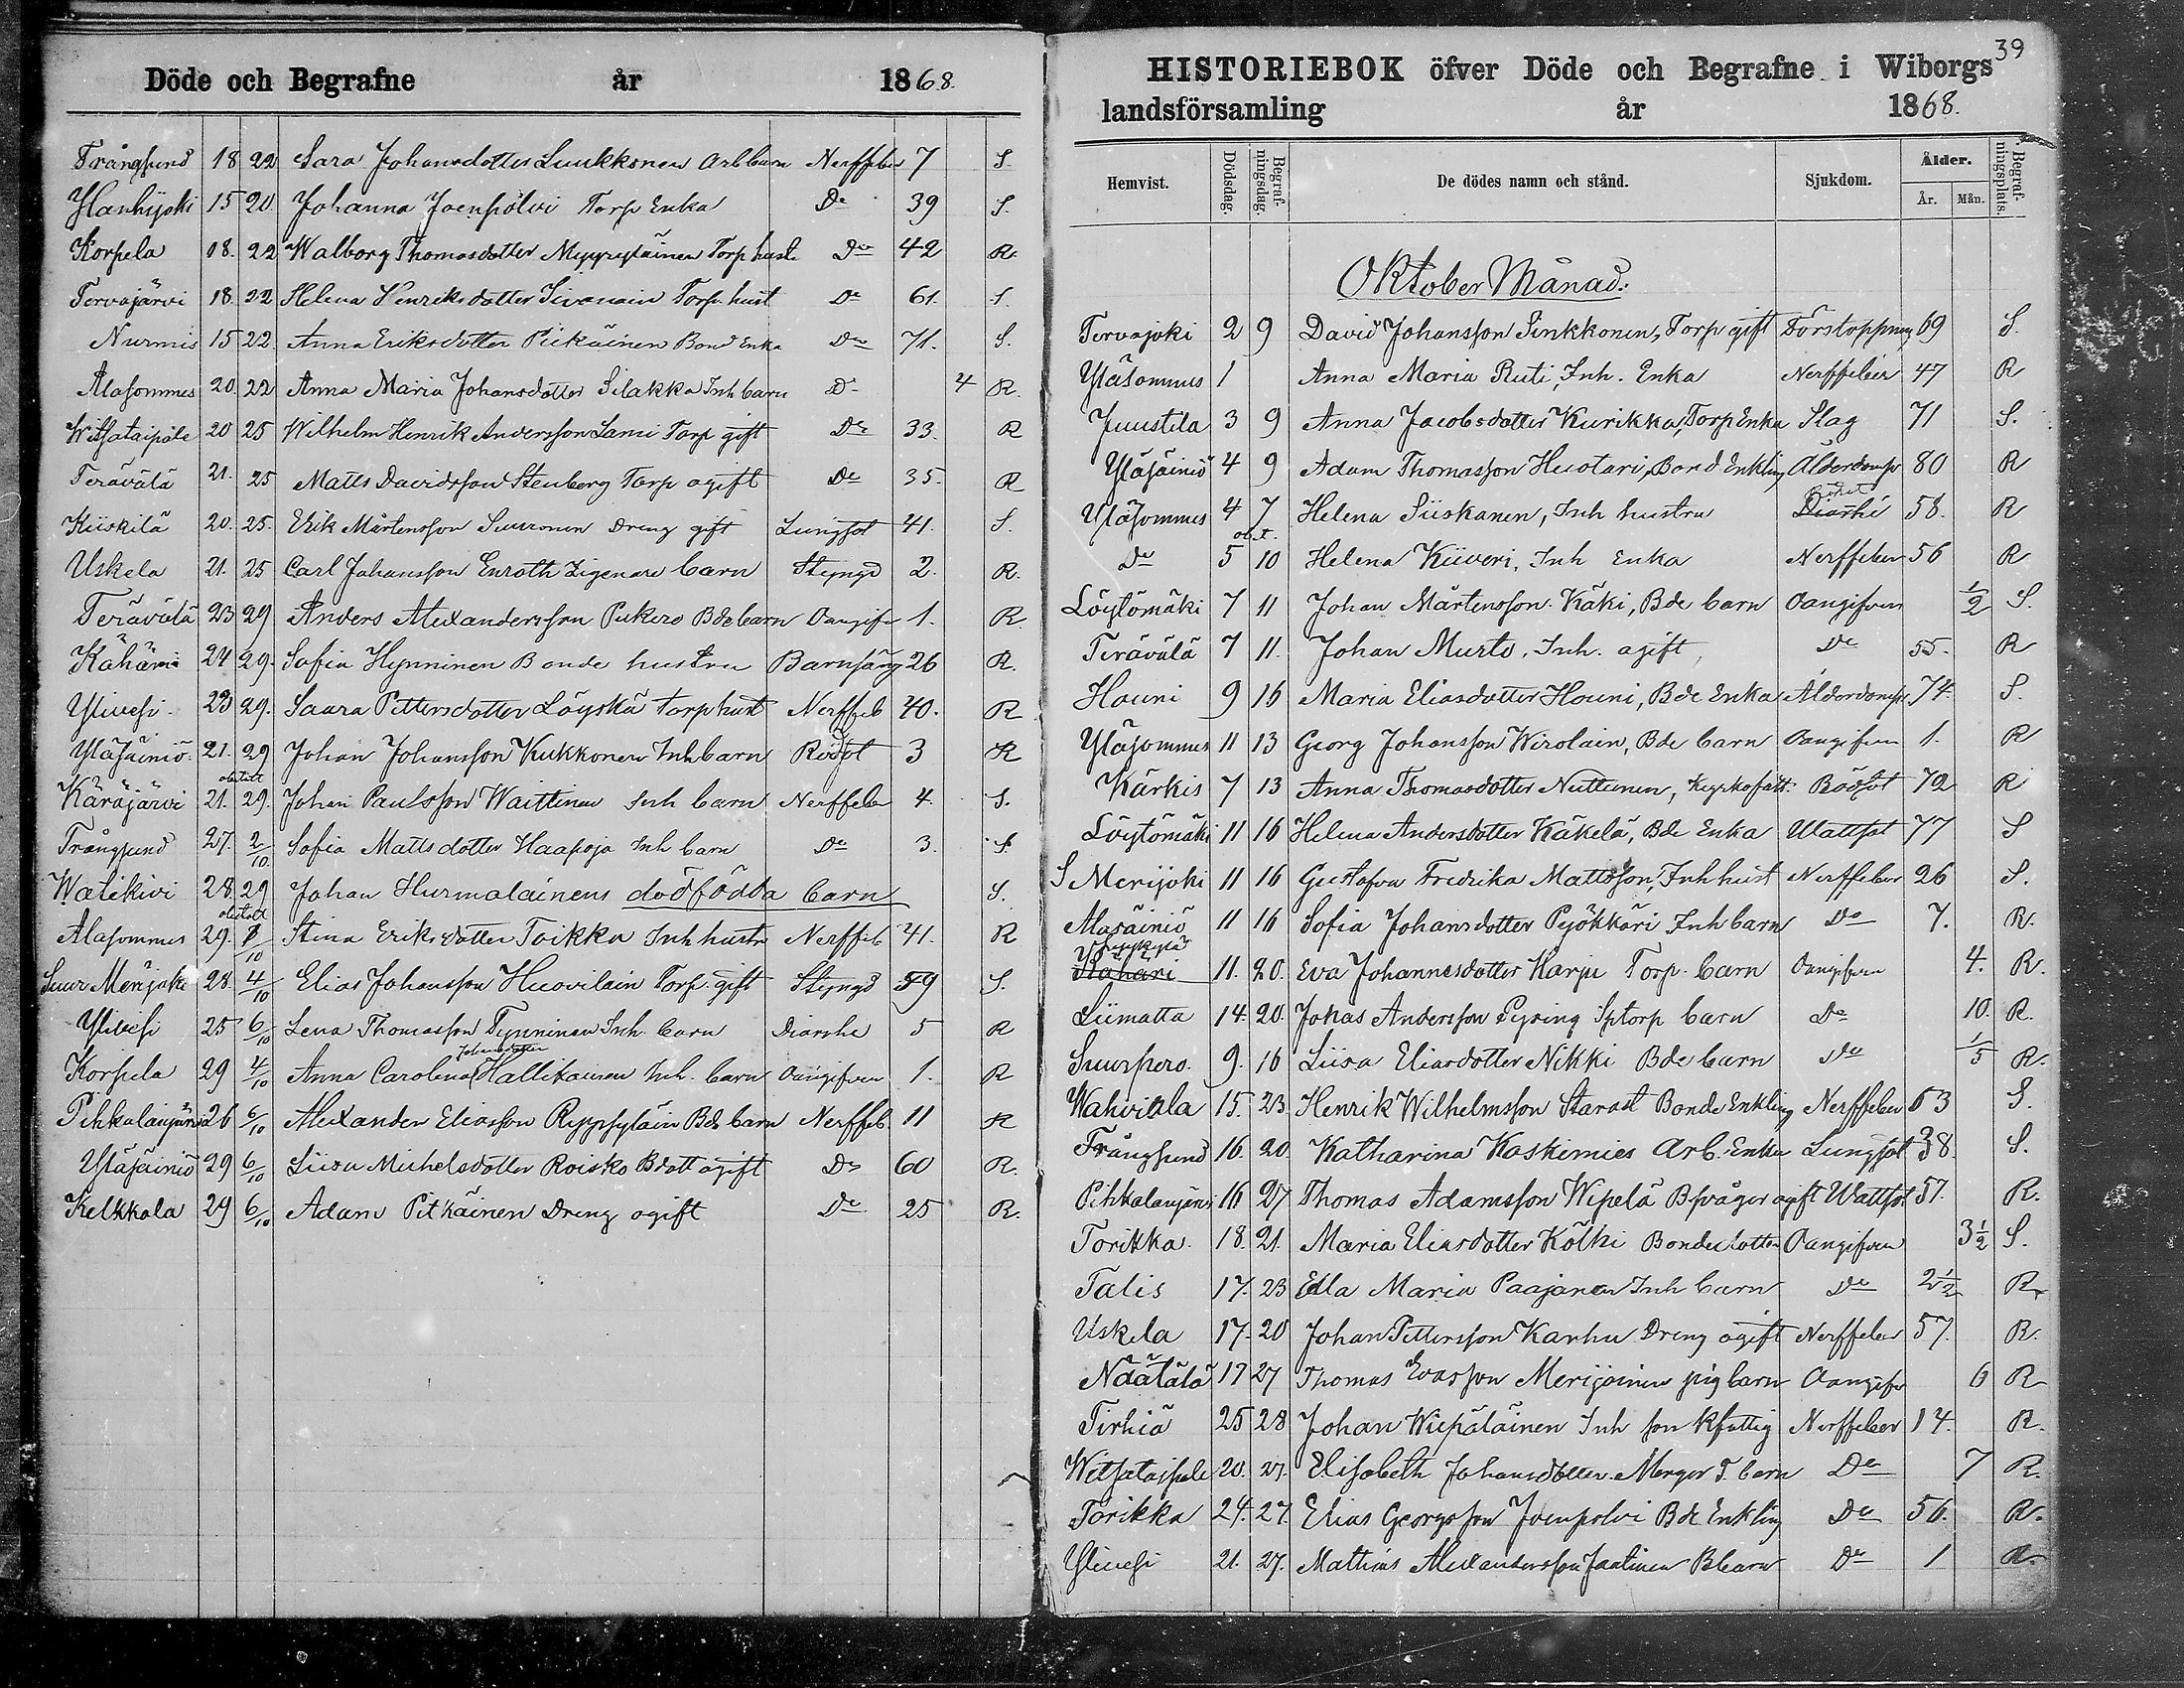 Döde och Begrafne år 1868.
Trångsund 18 22 Sara Johansdotter Luukkonen Arb barn Nerffeber 7 S.
Ylanhijoki 15 20. Johanna Joenpolvi Torp Enka Do 39 S.
Korpela 18. 22 Walborg Thomasdotter Myyryläinen Torp hust. Do 42 R.
Tervajärvi 18. 22 Helena Henriksdotter Sivonain Torp. hust Do 61. S.
Nurmis 15 22 Anna Eriksdotter Piikäinen Bond Enka Do 71. S.
Alasommes 20. 22 Anna Maria Johansdotter Silakka Inh barn Do 4 R.
Witsataipale 20 25 Wilhelm Henrik Andersson Lami Torp gift Do 33. R
Terävälä 21. 25 Matts Davidsson Stenberg Torp ogift Do 35. R
Kiiskilä 20. 25. Erik Mårtensson Suuronen Dreng gift Lungsot 41. S.
Uskela 21. 25 Carl Johansson Enroth Zigenare barn Styngd 2. R.
Terävälä 23 29 Anders Alexandersson Pukero Bde barn Oangifv 1. R.
Kähäri 24 29. Sofia Hynninen Bonde hustru Barnsäng 26 R.
Ylivesi 23 29. Saara Pettersdotter Löyskä torphust Nerffeb 40. R
Yläsäiniö 21. 29 Johan Johansson Kukkonen Inh barn Rödsot 3 R
Käräjärvi 21. 29. Johan Paulsson Waittinen Inh barn Nerffeber 4. S.
Trångsund 27. 2/10 Sofia Mattsdotter Haapoja Inh barn Do 3. S.
Watikivi 28. 29 Johan Hurmalainens dödfödda barn S.
Alasommes 29. 1/10 Stina Eriksdotter Toikka Inh hustr Nerffeb 41. R
Suur Merijoki 28. 4/10 Elias Johansson Huovilain Torp. gift Styngd 59 S.
Ylivesi 25 6/10 Lena Thomasson Tynninen Inh. barn Diarrhe 5 R
Johansdotter
Korpela 29 4/10 Anna Carolina Hallikainen Inh. barn Oangifven 1. R
Pihkalanjärvi 26 6/10 Alexander Eliasson Ryypyläin Bde barn Nerffeb. 11 R
Yläsäiniö 29 6/10 Liisa Michelsdotter Roisko Bdott ogift Do 60 R.
Kelkkala 29 6/10 Adam Pitkäinen Dreng ogift Do 25 R.
39
HISTORIEBOK öfver Döde och Begrafne i Wiborgs
landsförsamling år 1868.
Hemvist. Dödsdag. Begrafningsdag. De dödes namn och stånd. Sjukdom. Ålder. År. Mån. Begrafningsplats.
Oktober Månad.
Tervajoki 2 9 David Johansson Sinkkonen, Torp gift Förstoppning 69 S.
Yläsommes 1 Anna Maria Ruti, Inh. Enka Nerffeber 47 R
Juustila 3 9 Anna Jacobsdotter Kurikka, Torp Enka Slag 71 S.
Yläsäiniö 4 9 Adam Thomasson Huotari, Bond Enkling Ålderdomsv 80 R
Yläsommes 4 7 Helena Siiskanen, Inh hustru Diarrhé 58. R
Do 5 10 Helena Kiiveri, Inh Enka Nerffeber 56 R
Löytömäki 7 11 Johan Mårtensson Käki, Bde barn Oangifven 1/2 S.
Terävälä 7 11. Johan Murto, Inh. ogift, Do 55. R
Houni 9 16 Maria Eliasdotter Houni, Bde Enka Ålderdomsv 74. S.
Yläsommes 11 13 Georg Johansson Wirolain, Bde barn Oangifven 1. R
Kärkis 7 13 Anna Thomasdotter Nuttunen, Kyrkofatt. Rödsot 72 R
Löytömäki 11 16 Helena Andersdotter Käkelä, Bde Enka Wattsot 77 S
S Merijoki 11 16 Gustafva Fredrika Mattsson, Inh hust Nerffeber 26 S.
Alasäiniö 11 16 Sofia Johansdotter Pyökkäri Inh barn Do 7. R.
Kahari 11. 20. Eva Johannesdotter Karju Torp. barn Oangifven 4. R.
Liimatta 14. 20. Johas Andersson Pysing Sptorp barn Do 10. R.
Suurpero. 9. 16 Liisa Eliasdotter Nikki Bde barn Do 1/5 R.
Wahvikla 15. 23. Henrik Wilhelmsson Starast Bonde Enkling Nerffeber 63 S.
Trångsund 16. 20. Katharina Koskimies Arb. Enka Lungsot 38. S.
Pihkalanjärvi 16 27 Thomas Adamsson Wipelä B.svåger ogift Wattsot 57. R.
Torikka. 18. 21. Maria Eliasdotter Kölhi Bondedotter Oangifven 3 1/2 S.
Talis 17. 23 Ella Maria Paajanen Inh barn Do 2 1/2 R.
Uskela 17. 20 Johan Pettersson Karhu Dreng ogift Nerffeber 57. R.
Näätälä 17 27 Thomas Evasson Merijoinen pig barn Oangifv 6 R
Tirhiä 25 28 Johan Wiepäläinen Inh son Kfattig Nerffeber 14. R.
Witsataipale 20. 27. Elisabeth Johansdotter Monger T. barn Do 7 R.
Torikka 24. 27. Elias Georgsson Joenpolvi Bde Enkling Do 56. R.
Ylivesi 21. 27. Mathias Alexandersson Jantinen B barn Do 1 R.